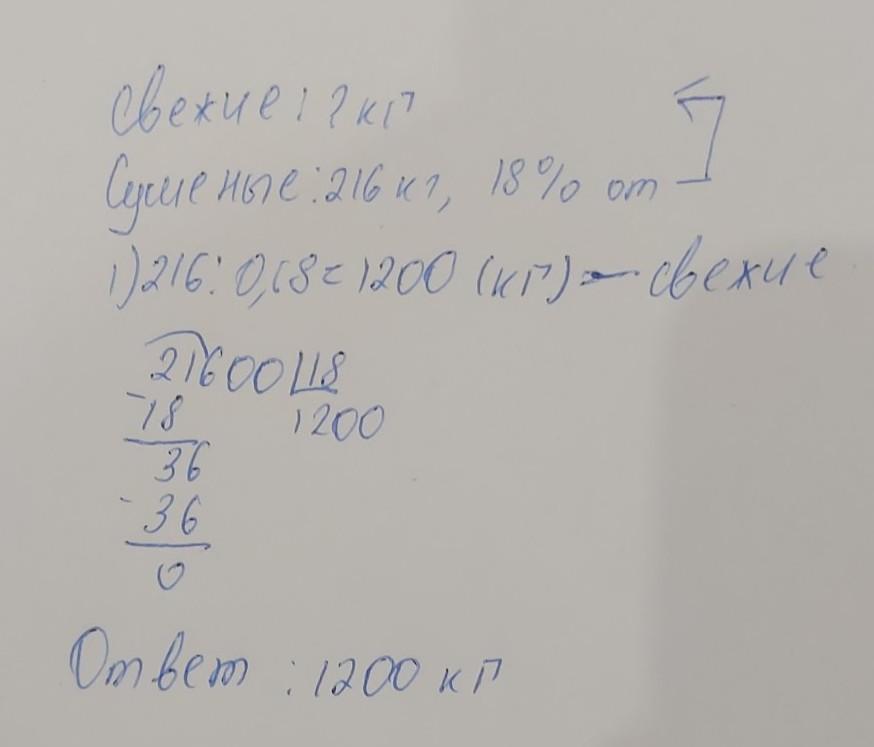 свежие: ? кг
Сушеные: 216 кг, 18% от
1) 216: 0,18 = 1200 (кг) - свежие
21600 18
- 18 1200
36
- 36
0
Ответ: 1200 кг